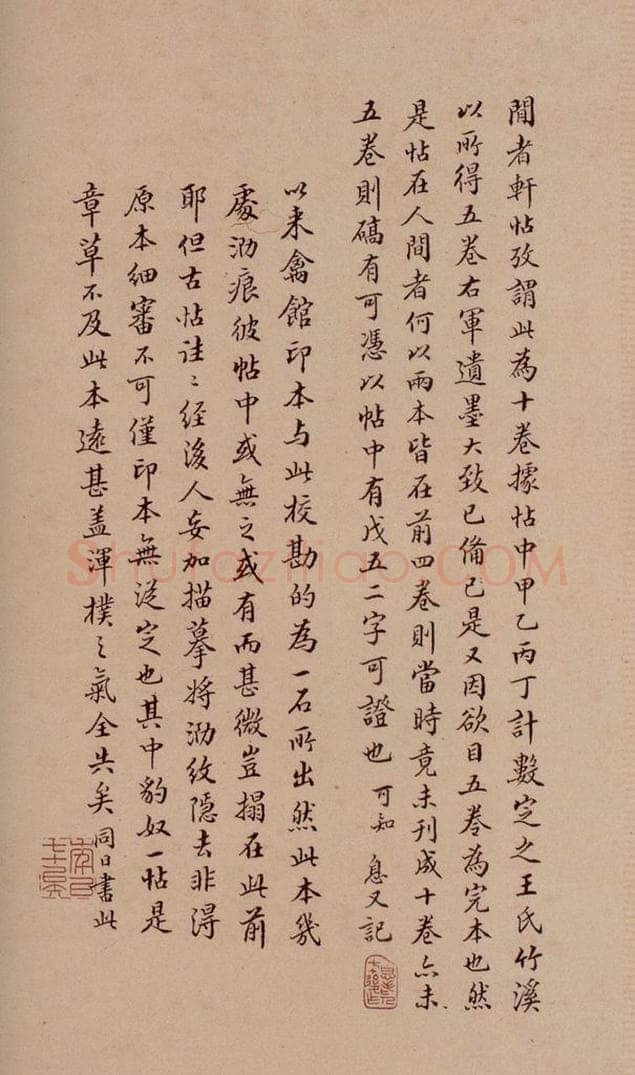 閒者軒帖攷謂此為十卷據帖中甲乙丙丁計數定之王氏竹溪
以所得五卷右軍遺墨大致已備已是又因欲目五卷為完本也然
是帖在人間者何以兩本皆在前四卷則當時竟未刊成十卷亦未
五卷則礄有可憑以帖中有戊五二字可證也 可知 息又記
以来禽館印本与此挍勘的為一石所出然此本幾
處泐痕彼帖中或無之或有而甚微豈搨在此前
耶但古帖往〻經後人妄加描摹將泐紋隱去非得
原本細審不可僅印本無從定也其中豹奴一帖是
章草不及此本遠甚盖渾樸之氣全失矣 同日書此
Shufazidian.COM